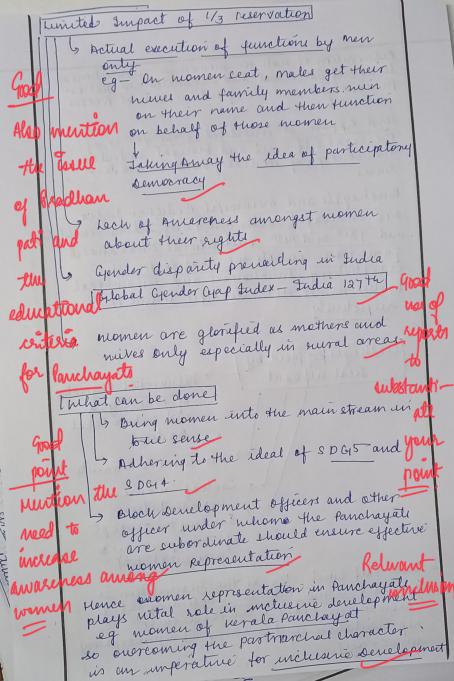 Limited Impact of 1/3 reservation
Actual execution of functions by men
only
eg - On women seat, males get their
wives and family members run
on their name and then function
on behalf of those women
Taking Away the idea of participatory
Democracy
Lack of Awareness amongst women
about their rights
Gender disparity prevailing in India
Global Gender Gap Index - India 127th
women are glorified as mothers and
wives only especially in rural areas
What can be done
Bring women into the main stream in
true sense
Adhering to the ideal of SDG5 and
SDG4
Block Development officers and other
officer under whom the Panchayati
are subordinate should ensure effective
women Representation
Hence women representation in Panchayati
plays vital role in inclusive development
eg women of Kerala Panchayat
so overcoming the patriarchal character
is an imperative for inclusive Development
Good
Also mention
the issue
of Pradhan
pati and
the
educational
criteria
for Panchayats
Good
use of
reports
to
substanti-
ate
your
point
Good
point
Mention the
need to
increase
awareness among
women
Relevant
conclusion